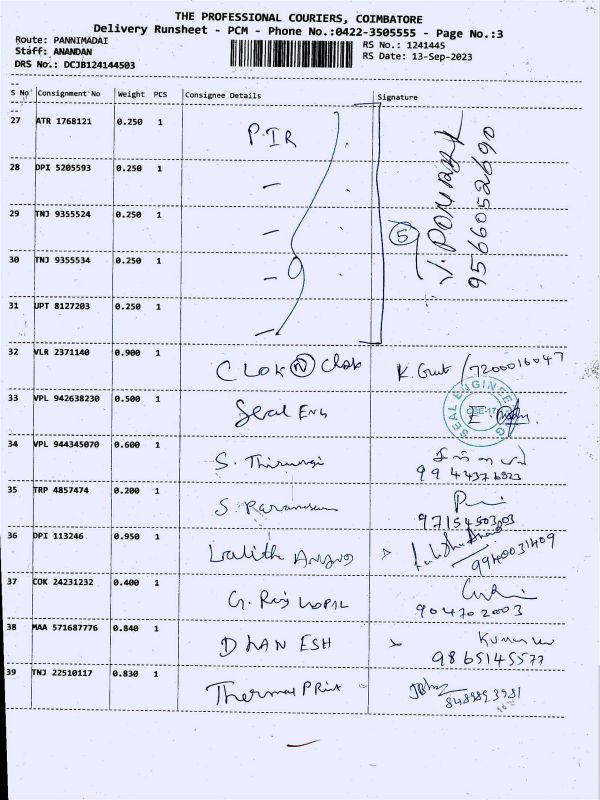 THE PROFESSIONAL COURIERS, COIMBATORE
Delivery Runsheet - PCM - Phone No.:0422-3505555 - Page No.:3
Route: PANNIMADAI
RS No.: 1241445
Staff: ANANDAN
RS Date: 13-Sep-2023
DRS No.: DCJB124144503
S No Consignment No Weight PCS Consignee Details Signature
27 ATR 1768121 0.250 1 P.IR
28 DPI 5205593 0.250 1 -
29 TNJ 9355524 0.250 1 -
30 TNJ 9355534 0.250 1 -
31 UPT 8127203 0.250 1 -
5
9566052690
32 VLR 2371140 0.900 1 CLOK N
7200016047
33 VPL 942638230 0.500 1 Seal Eng
SEAL ENGINEERING
34 VPL 944345070 0.600 1 S.
35 TRP 4857474 0.200 1 S.
9715450303
36 DPI 113246 0.950 1 Lalith
9940031409
37 COK 24231232 0.400 1 G. Raj GOPAL
904702003
38 MAA 571687776 0.840 1 DHANESH
9865145577
39 TNJ 22510117 0.830 1 Thermal PRint